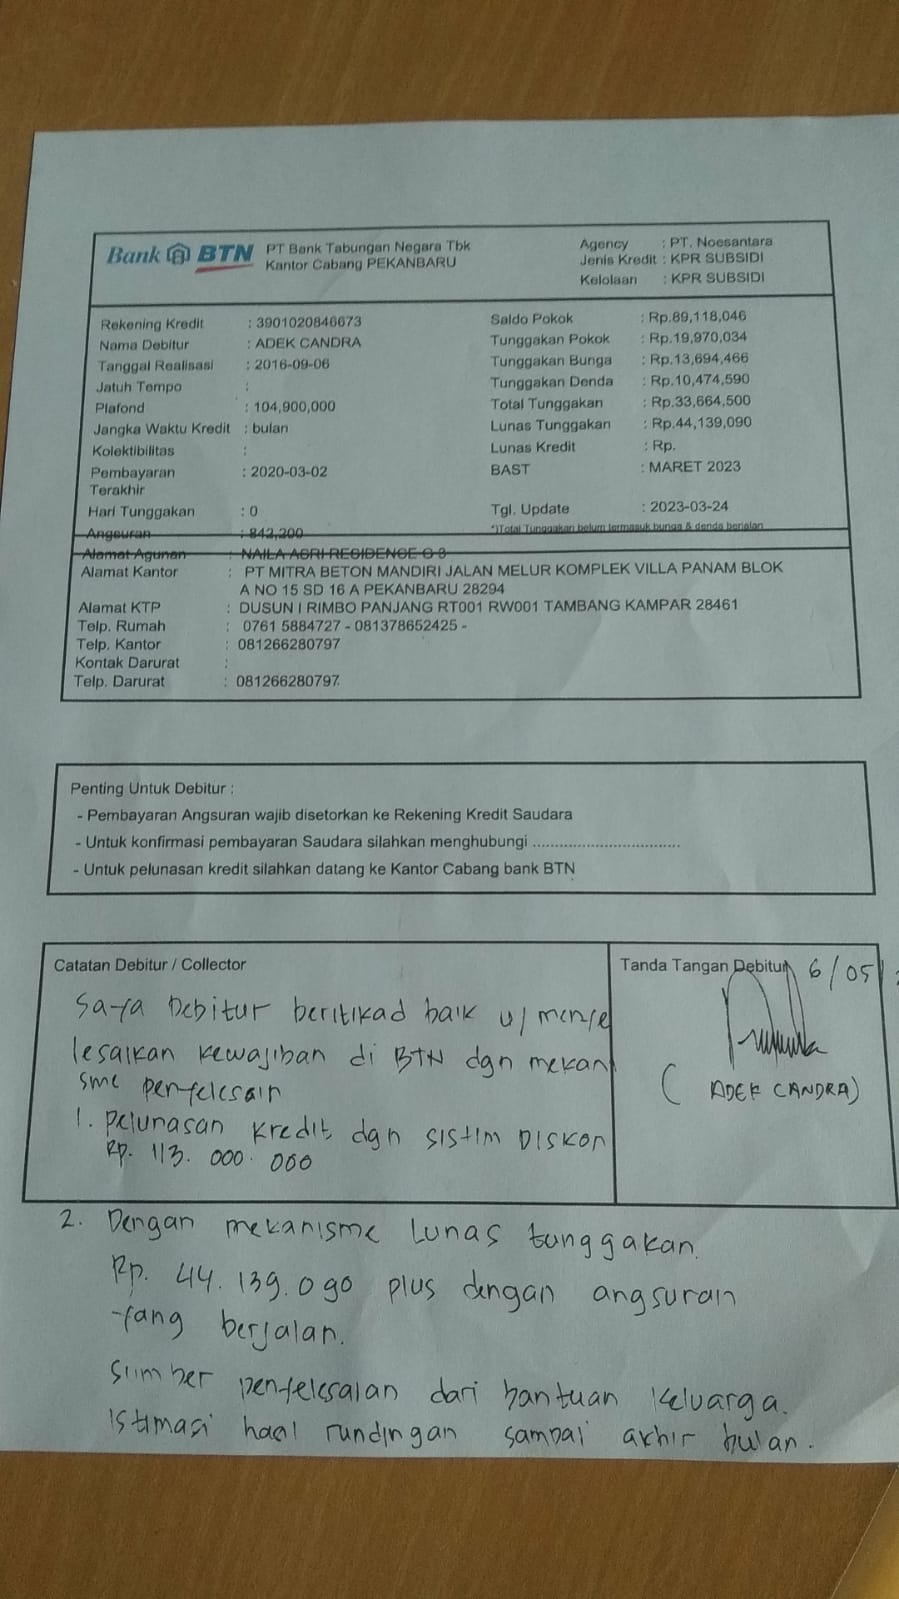 Bank BTN PT Bank Tabungan Negara Tbk
Kantor Cabang PEKANBARU
Agency : PT. Noesantara
Jenis Kredit : KPR SUBSIDI
Kelolaan : KPR SUBSIDI
Rekening Kredit : 3901020846673
Nama Debitur : ADEK CANDRA
Tanggal Realisasi : 2016-09-06
Jatuh Tempo :
Plafond : 104,900,000
Jangka Waktu Kredit : bulan
Kolektibilitas :
Pembayaran : 2020-03-02
Terakhir
Hari Tunggakan : 0
Angsuran : 842,200
Saldo Pokok : Rp.89,118,046
Tunggakan Pokok : Rp.19,970,034
Tunggakan Bunga : Rp.13,694,466
Tunggakan Denda : Rp.10,474,590
Total Tunggakan : Rp.33,664,500
Lunas Tunggakan : Rp.44,139,090
Lunas Kredit : Rp.
BAST : MARET 2023
Tgl. Update : 2023-03-24
*)Total Tunggakan belum termasuk bunga & denda berjalan
Alamat Agunan : NAILA ASRI RESIDENCE
Alamat Kantor : PT MITRA BETON MANDIRI JALAN MELUR KOMPLEK VILLA PANAM BLOK
A NO 15 SD 16 A PEKANBARU 28294
Alamat KTP : DUSUN I RIMBO PANJANG RT001 RW001 TAMBANG KAMPAR 28461
Telp. Rumah : 0761 5884727 - 081378652425 -
Telp. Kantor : 081266280797
Kontak Darurat :
Telp. Darurat : 081266280797
Penting Untuk Debitur :
- Pembayaran Angsuran wajib disetorkan ke Rekening Kredit Saudara
- Untuk konfirmasi pembayaran Saudara silahkan menghubungi ..................................
- Untuk pelunasan kredit silahkan datang ke Kantor Cabang bank BTN
Catatan Debitur / Collector
Saya Debitur beritikad baik u/ menye
lesaikan kewajiban di BTN dgn mekan
sme penyelesain
1. Pelunasan kredit dgn sistim DISKON
Rp. 113.000.000
Tanda Tangan Debitur 6/05
( ADEK CANDRA)
2. Dengan mekanisme Lunas tunggakan.
Rp. 44.139.090 plus dengan angsuran
yang berjalan.
Sumber penyelesaian dari bantuan keluarga.
Istimasi hasil rundingan sampai akhir bulan.